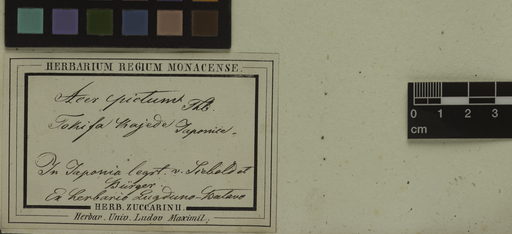 HERBARIUM REGIUM MONACENSE.
Acer pictum Thb.
Tokifa Kajede Japonice.
In Japonia legit. v. Siebold et
Bürger
Ex herbario Lugduno-Batavo
HERB. ZUCCARINII.
Herbar. Univ. Ludov Maximil.
0 1 2 3
cm